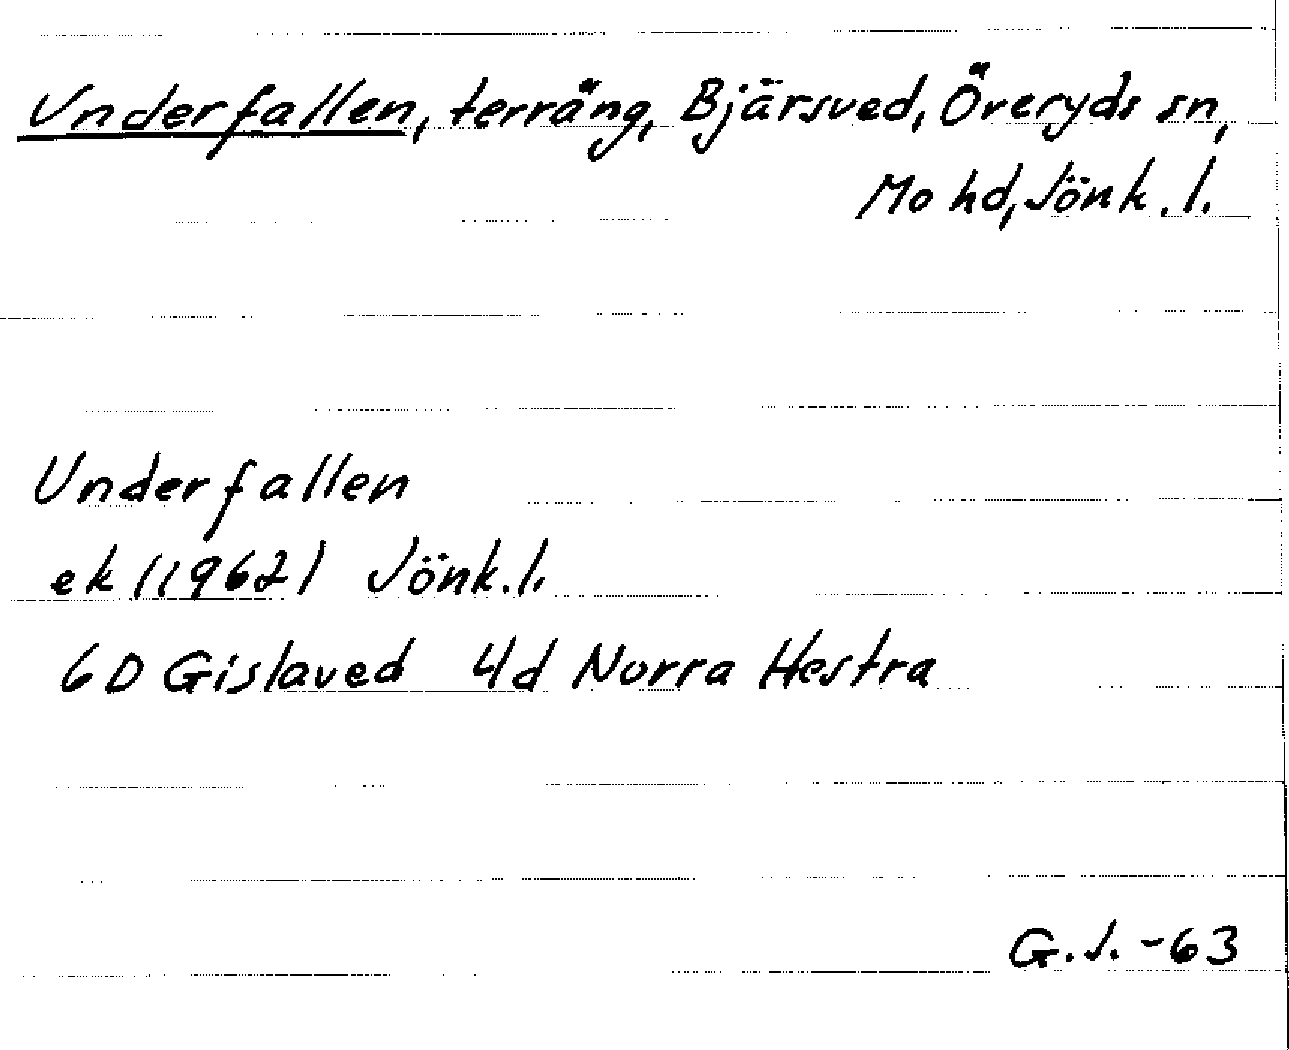 Underfallen, terräng, Bjärsved, Öreryds sn,
Mo hd, Jönk.l.
Underfallen
ek (1962) Jönk.l.
6D Gislaved 4d Norra Hestra
G.J. -63